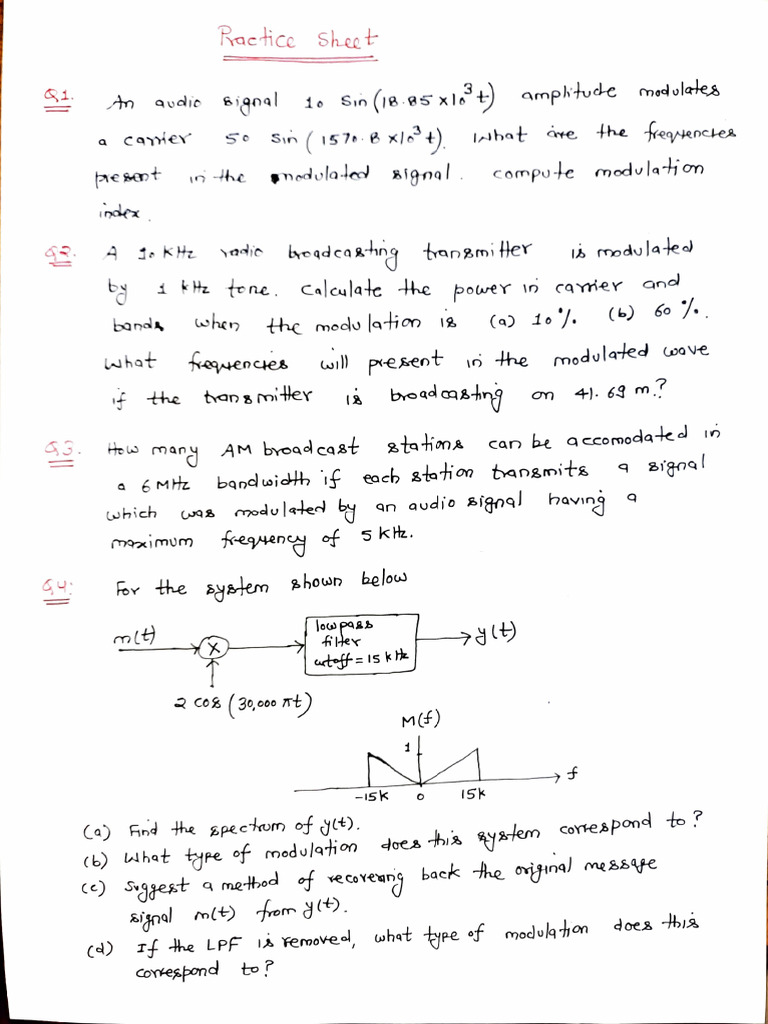 Practice Sheet
Q1. An audio signal 10 Sin (18.85 x10³ t) amplitude modulates
a carrier 50 sin (1570.8 x10³ t). What are the frequencies
present in the modulated signal. compute modulation
index.
Q2. A 10 kHz radio broadcasting transmitter is modulated
by 1 kHz tone. Calculate the power in carrier and
bands when the modulation is (a) 10% (b) 60 %.
What frequencies will present in the modulated wave
if the transmitter is broadcasting on 41.69 m.?
Q3. How many AM broadcast stations can be accomodated in
a 6 MHz bandwidth if each station transmits a signal
which was modulated by an audio signal having a
maximum frequency of 5 kHz.
Q4: For the system shown below
m(t) X lowpass filter cutoff = 15 kHz y(t)
2 cos (30,000 πt)
M(f)
1
f
-15k 0 15k
(a) Find the spectrum of y(t).
(b) What type of modulation does this system correspond to?
(c) Suggest a method of recovering back the original message
signal m(t) from y(t).
(d) If the LPF is removed, what type of modulation does this
correspond to?